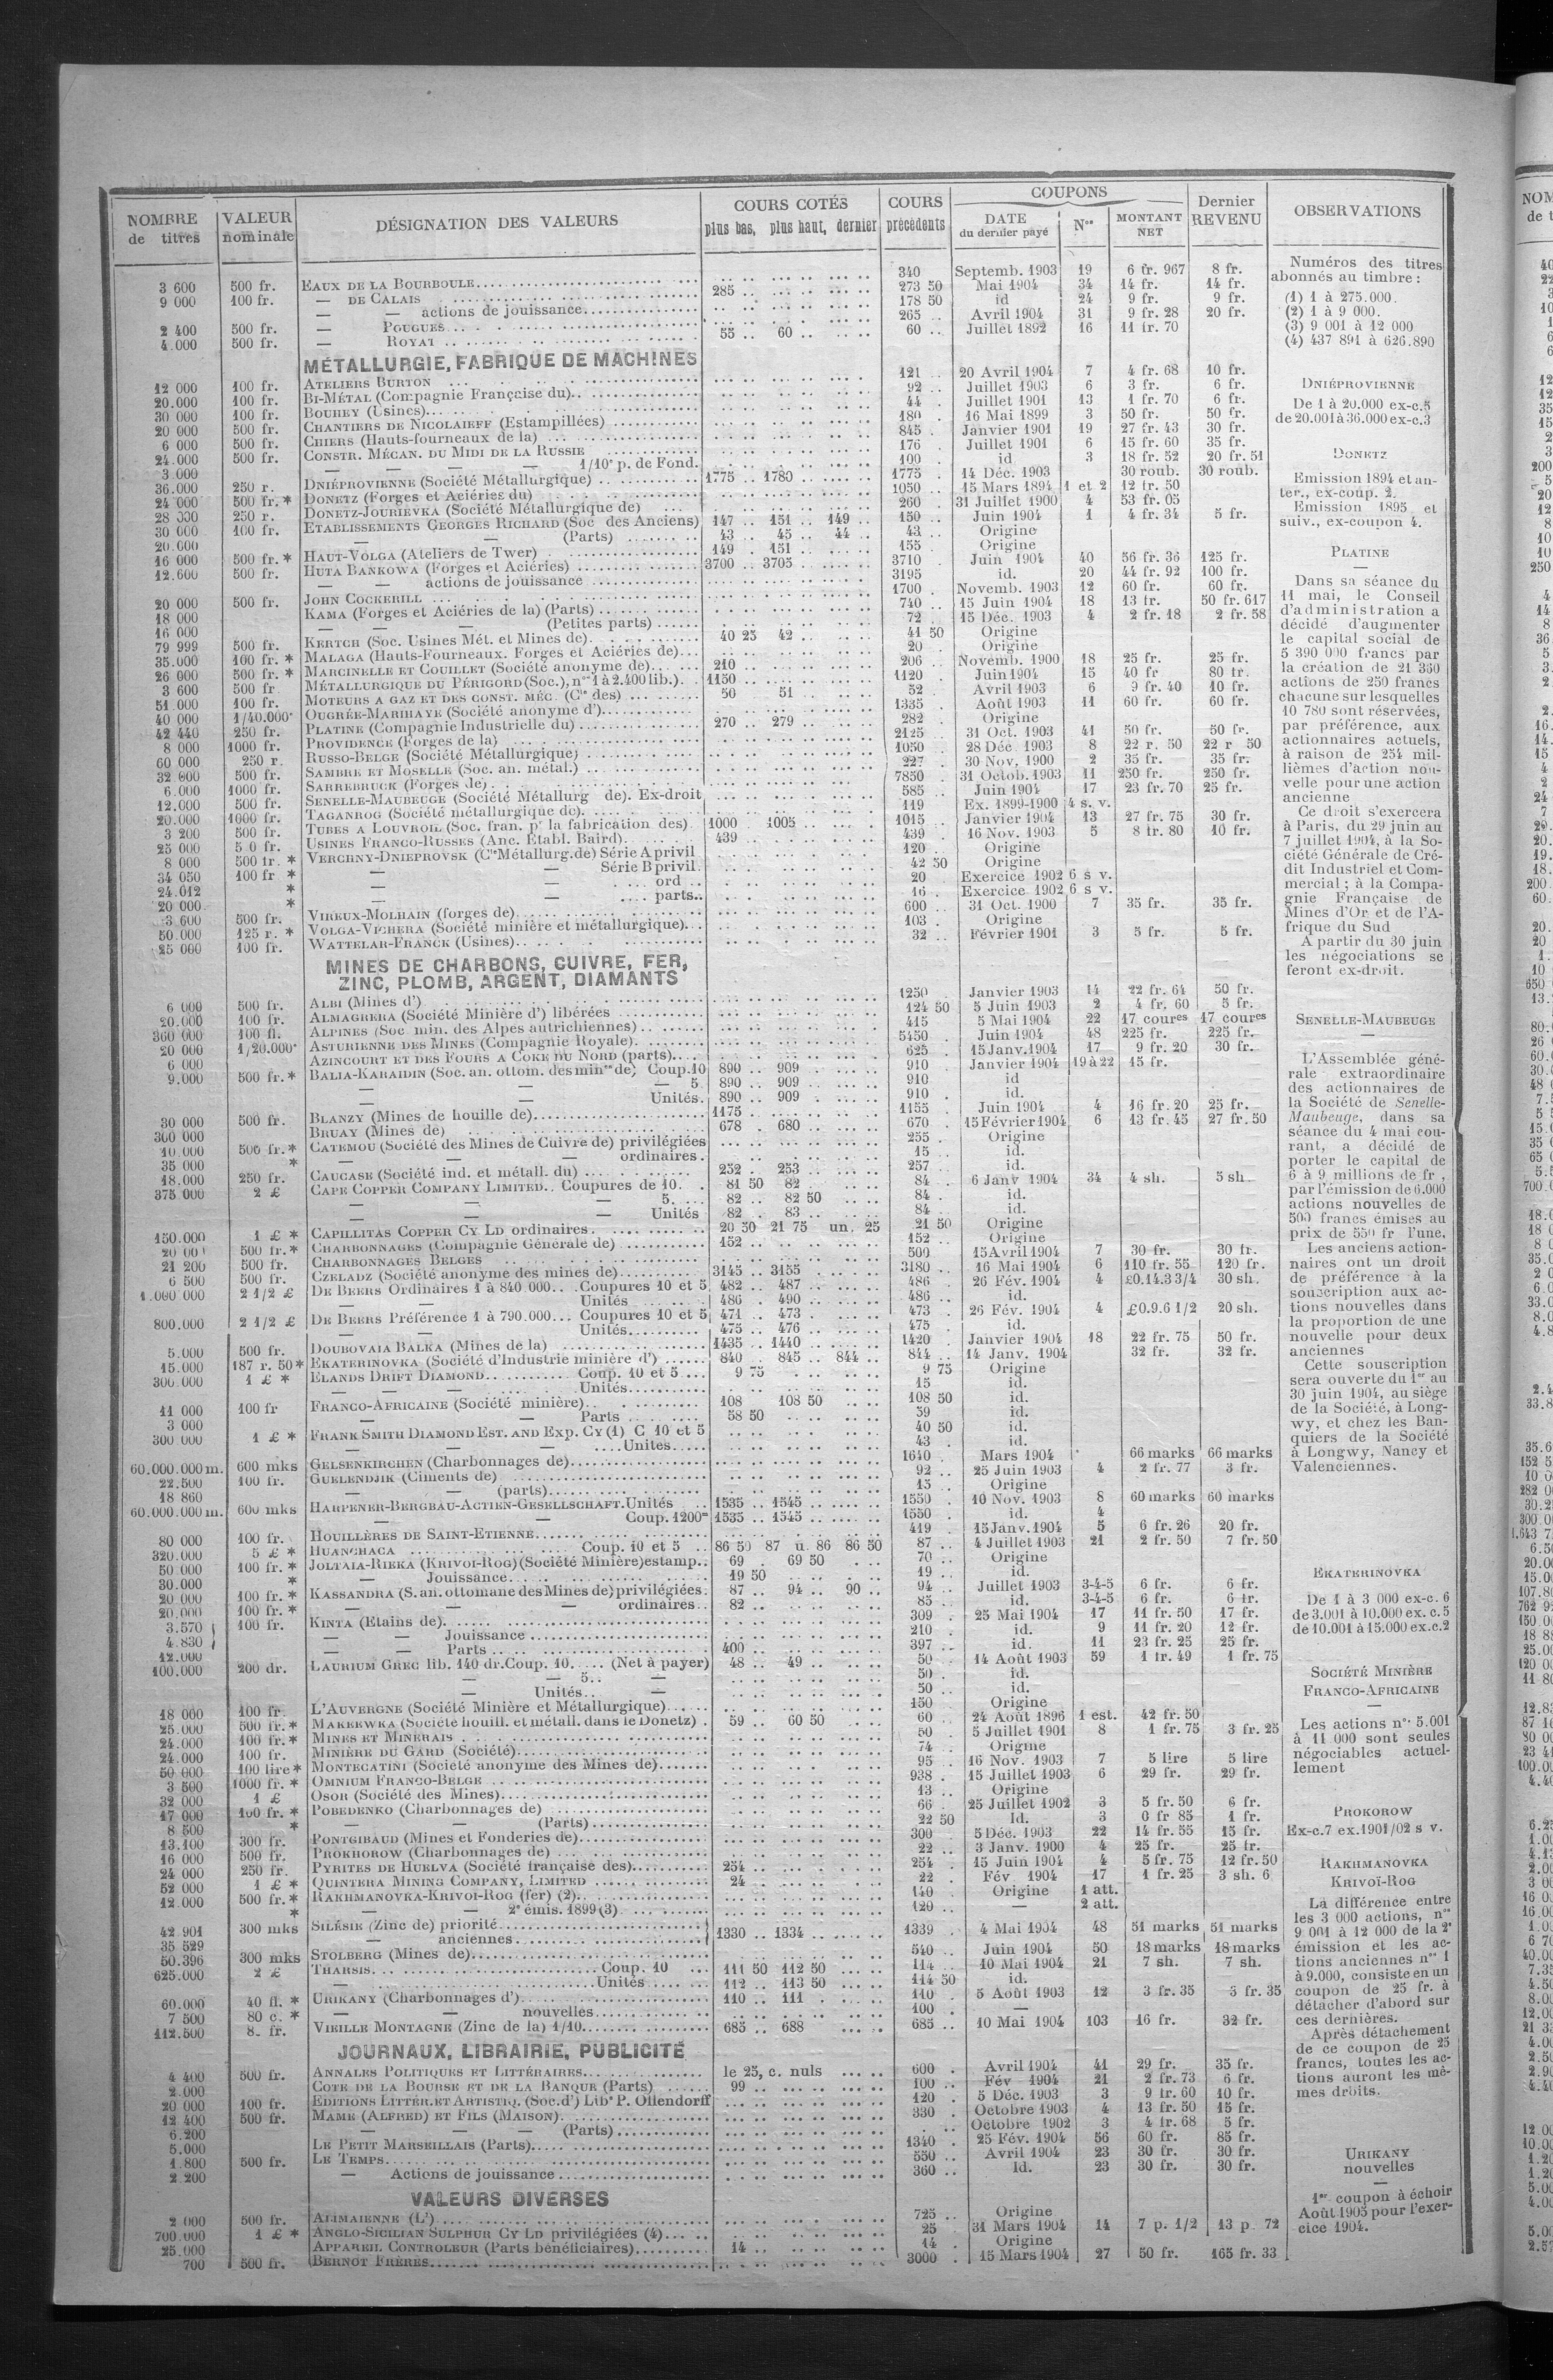 NOMBRE de titres | VALEUR nominale | DÉSIGNATION DES VALEURS | COURS COTÉS plus bas, plus haut, dernier | COURS précédents | COUPONS DATE du dernier payé | Nos | MONTANT NET | Dernier REVENU | OBSERVATIONS
3 600 500 fr. EAUX DE LA BOURBOULE 340 Septemb. 1903 19 6 fr. 967 8 fr.
9 000 100 fr. — DE CALAIS 285 273 50 Mai 1904 34 14 fr. 14 fr.
— — actions de jouissance 178 50 id 24 9 fr. 9 fr.
2 400 500 fr. — POUGUES 265 Avril 1904 31 9 fr. 28 20 fr.
4.000 500 fr. — ROYAT 55 60 60 Juillet 1892 16 11 fr. 70
MÉTALLURGIE, FABRIQUE DE MACHINES
12 000 100 fr. ATELIERS BURTON 121 20 Avril 1904 7 4 fr. 68 10 fr.
20.000 100 fr. BI-MÉTAL (Compagnie Française du) 92 Juillet 1903 6 3 fr. 6 fr.
30 000 100 fr. BOUHEY (Usines) 44 Juillet 1901 13 1 fr. 70 6 fr.
20 000 500 fr. CHANTIERS DE NICOLAIEFF (Estampillées) 180 16 Mai 1899 3 50 fr. 50 fr.
6 000 500 fr. CHIERS (Hauts-fourneaux de la) 845 Janvier 1901 19 27 fr. 43 30 fr.
24.000 500 fr. CONSTR. MÉCAN. DU MIDI DE LA RUSSIE 176 Juillet 1901 6 15 fr. 60 35 fr.
3.000 — — — — 1/10e p. de Fond. 100 id 3 18 fr. 52 20 fr. 51
36.000 250 r. DNIÉPROVIENNE (Société Métallurgique) 1775 1780 1775 14 Déc. 1903 30 roub. 30 roub.
24 000 500 fr.* DONETZ (Forges et Aciéries du) 1050 15 Mars 1894 1 et 2 12 fr. 50
250 r. DONETZ-JOURIEVKA (Société Métallurgique de) 260 31 Juillet 1900 4 53 fr. 05
30 000 100 fr. ETABLISSEMENTS GEORGES RICHARD (Soc des Anciens) 147 151 149 150 Juin 1904 1 4 fr. 34 5 fr.
20.000 — — (Parts) 43 45 44 43 Origine
16 000 500 fr.* HAUT-VOLGA (Ateliers de Twer) 149 151 155 Origine
12.600 500 fr. HUTA BANKOWA (Forges et Aciéries) 3700 3705 3710 Juin 1904 40 56 fr. 36 125 fr.
— — actions de jouissance 3195 id. 20 44 fr. 92 100 fr.
20 000 500 fr. JOHN COCKERILL 1700 Novemb. 1903 12 60 fr. 60 fr.
18 000 KAMA (Forges et Aciéries de la) (Parts) 740 15 Juin 1904 18 13 fr. 50 fr. 617
16 000 — — — (Petites parts) 72 15 Déc. 1903 4 2 fr. 18 2 fr. 58
79 999 500 fr. KERTCH (Soc. Usines Mét. et Mines de) 40 25 42 41 50 Origine
35.000 100 fr. * MALAGA (Hauts-Fourneaux. Forges et Aciéries de) 20 Origine
26 000 500 fr. * MARCINELLE ET COUILLET (Société anonyme de) 210 206 Novemb. 1900 18 25 fr. 25 fr.
3 600 500 fr MÉTALLURGIQUE DU PÉRIGORD (Soc.), nos 1 à 2.400 lib.) 1150 1120 Juin 1904 15 40 fr 80 fr.
51 000 100 fr. MOTEURS A GAZ ET DES CONST. MÉC. (Cie des) 50 51 52 Avril 1903 6 9 fr. 40 10 fr.
40 000 1/40.000e OUGRÉE-MARIHAYE (Société anonyme d') 1335 Août 1903 11 60 fr. 60 fr.
42 440 250 fr. PLATINE (Compagnie Industrielle du) 270 279 282 Origine
8 000 1000 fr. PROVIDENCE (Forges de la) 2125 31 Oct. 1903 41 50 fr. 50 fr.
60 000 250 r. RUSSO-BELGE (Société Métallurgique) 1050 28 Déc. 1903 8 22 r. 50 22 r 50
32 000 500 fr. SAMBRE ET MOSELLE (Soc. an. métal.) 227 30 Nov. 1900 2 35 fr. 35 fr.
6.000 1000 fr. SARREBRUCK (Forges de) 7850 31 Octob. 1903 11 250 fr. 250 fr.
12.000 500 fr. SENELLE-MAUBEUGE (Société Métallurg de). Ex-droit 585 Juin 1904 17 23 fr. 70 25 fr.
20.000 1000 fr. TAGANROG (Société métallurgique de) 119 Ex. 1899-1900 4 s. v.
3 200 500 fr. TUBES A LOUVROIL (Soc. fran. pr la fabrication des) 1000 1005 1015 Janvier 1904 13 27 fr. 75 30 fr.
25 000 5 0 fr. USINES FRANCO-RUSSES (Anc. Établ. Baird) 439 439 16 Nov. 1903 5 8 fr. 80 10 fr.
8 000 500 fr. * VERCHNY-DNIEPROVSK (Cie Métallurg. de) Série A privil 120 Origine
34 050 100 fr * — — Série B privil 42 50 Origine
24.012 * — — ord 20 Exercice 1902 6 s v.
20 000 * — — parts 16 Exercice 1902 6 s v.
3.600 500 fr. VIREUX-MOLHAIN (forges de) 600 31 Oct. 1900 7 35 fr. 35 fr.
50.000 125 r. * VOLGA-VICHERA (Société minière et métallurgique) 103 Origine
25 000 100 fr. WATTELAR-FRANCK (Usines) 32 Février 1901 3 5 fr. 5 fr.
MINES DE CHARBONS, CUIVRE, FER,
ZINC, PLOMB, ARGENT, DIAMANTS
6 000 500 fr. ALBI (Mines d') 1250 Janvier 1903 14 22 fr. 64 50 fr.
20.000 100 fr. ALMAGRERA (Société Minière d') libérées 124 50 5 Juin 1903 2 4 fr. 60 5 fr.
360 000 100 fl. ALPINES (Soc min. des Alpes autrichiennes) 415 5 Mai 1904 22 17 coures 17 coures
20 000 1/20.000e ASTURIENNE DES MINES (Compagnie Royale) 5450 Juin 1904 48 225 fr. 225 fr.
6 000 AZINCOURT ET DES FOURS A COKE DU NORD (parts) 625 15 Janv. 1904 17 9 fr. 20 30 fr.
9.000 500 fr.* BALIA-KARAIDIN (Soc. an. ottom. des mines de) Coup. 10 890 909 910 Janvier 1904 19 à 22 15 fr.
— — 5 890 909 910 id
Unités. 890 909 910 id.
30 000 500 fr. BLANZY (Mines de houille de) 1175 1155 Juin 1904 4 16 fr. 20 25 fr.
300 000 BRUAY (Mines de) 678 680 670 15 Février 1904 6 13 fr. 45 27 fr. 50
10.000 500 fr.* CATEMOU (Société des Mines de Cuivre de) privilégiées 255 Origine
35 000 * — — — ordinaires 15 id.
18.000 250 fr. CAUCASE (Société ind. et métall. du) 252 253 257 id.
375 000 2 £ CAPE COPPER COMPANY LIMITED.. Coupures de 10. 81 50 82 84 6 Janv 1904 34 4 sh. 5 sh.
— — 5. 82 82 50 84 id.
— — Unités 82 83 84 id.
150.000 1 £ * CAPILLITAS COPPER CY LD ordinaires 20 50 21 75 un. 25 21 50 Origine
500 fr.* CHARBONNAGES (Compagnie Générale de) 152 152 Origine
21 200 500 fr. CHARBONNAGES BELGES 500 15 Avril 1904 7 30 fr. 30 fr.
6 500 500 fr. CZELADZ (Société anonyme des mines de) 3145 3155 3180 16 Mai 1904 6 110 fr. 55 120 fr.
1.000 000 2 1/2 £ DE BEERS Ordinaires 1 à 840 000... Coupures 10 et 5 482 487 486 26 Fév. 1904 4 £0.14.3 3/4 30 sh.
— — Unités 486 490 486 id.
800.000 2 1/2 £ DE BEERS Préférence 1 à 790.000... Coupures 10 et 5 471 473 473 26 Fév. 1904 4 £0.9.6 1/2 20 sh.
— — Unités 475 476 475 id.
5.000 500 fr. DOUBOVAIA BALKA (Mines de la) 1435 1440 1420 Janvier 1904 18 22 fr. 75 50 fr.
15.000 187 r. 50* EKATERINOVKA (Société d'Industrie minière d') 840 845 844 844 14 Janv. 1904 32 fr. 32 fr.
300.000 1 £ * ELANDS DRIFT DIAMOND Coup. 10 et 5 9 75 9 75 Origine
— — — Unités 15 id.
11 000 100 fr FRANCO-AFRICAINE (Société minière) 108 108 50 108 50 id.
3 000 — — Parts 58 50 59 id.
300 000 1 £ * FRANK SMITH DIAMOND EST. AND EXP. CY (1) C 10 et 5 40 50 id.
— — — Unités 43 id.
60.000.000 m. 600 mks GELSENKIRCHEN (Charbonnages de) 1640 Mars 1904 66 marks 66 marks
22.500 100 fr. GUELENDJIK (Ciments de) 92 25 Juin 1903 4 2 fr. 77 3 fr.
18 860 — — (parts) 15 Origine
60.000.000 m. 600 mks HARPENER-BERGBAU-ACTIEN-GESELLSCHAFT. Unités 1535 1545 1550 10 Nov. 1903 8 60 marks 60 marks
— — Coup. 1200m 1535 1545 1550 id. 4
80 000 100 fr. HOUILLÈRES DE SAINT-ETIENNE 419 15 Janv. 1904 5 6 fr. 26 20 fr.
320.000 5 £ * HUANCHACA Coup. 10 et 5 86 50 87 u. 86 86 50 87 4 Juillet 1903 21 2 fr. 50 7 fr. 50
50 000 100 fr. * JOLTAIA-RIEKA (KRIVOI-ROG) (Société Minière) estamp. 69 69 50 70 Origine
30.000 * — Jouissance 19 50 19 id.
20 000 100 fr. * KASSANDRA (S. an. ottomane des Mines de) privilégiées. 87 94 90 94 Juillet 1903 3-4-5 6 fr. 6 fr.
20.000 100 fr. * — — — ordinaires 82 85 id. 3-4-5 6 fr. 6 fr.
3.570 100 fr. KINTA (Etains de) 309 25 Mai 1904 17 11 fr. 50 17 fr.
4.830 — — Jouissance 210 id. 9 11 fr. 20 12 fr.
12.000 — — Parts 400 397 id. 11 23 fr. 25 25 fr.
100.000 200 dr. LAURIUM GREC lib. 140 dr. Coup. 10. (Net à payer) 48 49 50 14 Août 1903 59 1 fr. 49 1 fr. 75
— 5.. — 50 id.
— Unités.. — 50 id.
18 000 100 fr. L'AUVERGNE (Société Minière et Métallurgique) 150 Origine
25.000 500 fr. * MAKEEWKA (Société houill. et métall. dans le Donetz) 59 60 50 60 24 Août 1896 1 est. 42 fr. 50
24.000 100 fr. * MINES ET MINERAIS 50 5 Juillet 1901 8 1 fr. 75 3 fr. 25
24.000 100 fr. MINIÈRE DU GARD (Société) 74 Origine
50 000 100 lire * MONTECATINI (Société anonyme des Mines de) 95 16 Nov. 1903 7 5 lire 5 lire
3 500 1000 fr. * OMNIUM FRANCO-BELGE 938 15 Juillet 1903 6 29 fr. 29 fr.
32 000 1 £ OSOR (Société des Mines) 13 Origine
17 000 100 fr. * POBEDENKO (Charbonnages de) 66 25 Juillet 1902 3 5 fr. 50 6 fr.
8 500 * — — (Parts) 22 50 Id. 3 0 fr 85 1 fr.
13.100 300 fr. PONTGIBAUD (Mines et Fonderies de) 300 5 Déc. 1903 22 14 fr. 55 15 fr.
16 000 500 fr. PROKHOROW (Charbonnages de) 22 3 Janv. 1900 4 25 fr. 25 fr.
24 000 250 fr. PYRITES DE HUELVA (Société française des) 254 254 15 Juin 1904 4 5 fr. 75 12 fr. 50
52 000 1 £ * QUINTERA MINING COMPANY, LIMITED 24 22 Fév 1904 17 1 fr. 25 3 sh. 6
12.000 500 fr. * RAKHMANOVKA-KRIVOI-ROG (fer) (2) 140 Origine 1 att.
* — — 2e émis. 1899 (3) 120 — 2 att.
42 901 300 mks SILÉSIE (Zinc de) priorité 1330 1334 1339 4 Mai 1904 48 51 marks 51 marks
35 529 — anciennes
50.396 300 mks STOLBERG (Mines de) 540 Juin 1904 50 18 marks 18 marks
625.000 2 £ THARSIS Coup. 10 111 50 112 50 114 10 Mai 1904 21 7 sh. 7 sh.
— Unités 112 113 50 114 50 id.
60.000 40 fl. * URIKANY (Charbonnages d') 110 111 110 5 Août 1903 12 3 fr. 35 3 fr. 35
7 500 80 c. * — — nouvelles 100 —
112.500 8- fr. VIEILLE MONTAGNE (Zinc de la) 1/10 685 688 685 10 Mai 1904 103 16 fr. 32 fr.
JOURNAUX, LIBRAIRIE, PUBLICITÉ
4 400 500 fr. ANNALES POLITIQUES ET LITTÉRAIRES le 25, c. nuls 600 Avril 1904 41 29 fr. 35 fr.
2.000 COTE DE LA BOURSE ET DE LA BANQUE (Parts) 99 100 Fév 1904 21 2 fr. 73 6 fr.
20 000 100 fr. EDITIONS LITTÉR. ET ARTISTIQ. (Soc. d') Libe P. Ollendorff 120 5 Déc. 1903 3 9 fr. 60 10 fr.
12 400 500 fr. MAME (ALFRED) ET FILS (MAISON) 330 Octobre 1903 4 13 fr. 50 15 fr.
6.200 — — — (Parts) Octobre 1902 3 4 fr. 68 5 fr.
5.000 LE PETIT MARSEILLAIS (Parts) 1340 25 Fév. 1904 56 60 fr. 85 fr.
1.800 500 fr. LE TEMPS 550 Avril 1904 23 30 fr. 30 fr.
2 200 — Actions de jouissance 360 Id. 23 30 fr. 30 fr.
VALEURS DIVERSES
2 000 500 fr. ALIMAIENNE (L') 725 Origine
700.000 1 £ * ANGLO-SICILIAN SULPHUR CY LD privilégiées (4) 25 31 Mars 1904 14 7 p. 1/2 13 p. 72
25.000 APPAREIL CONTROLEUR (Parts bénéficiaires) 14 14 Origine
700 500 fr. BERNOT FRÈRES 3000 15 Mars 1904 27 50 fr. 165 fr. 33
Numéros des titres
abonnés au timbre :
(1) 1 à 275.000.
(2) 1 à 9 000.
(3) 9 001 à 12 000
(4) 437 891 à 626.890
DNIÉPROVIENNE
De 1 à 20.000 ex-c.5
de 20.001 à 36.000 ex-c.3
DONETZ
Emission 1894 et an-
ter., ex-coup. 2.
Emission 1895 et
suiv., ex-coupon 4.
PLATINE
Dans sa séance du
11 mai, le Conseil
d'administration a
décidé d'augmenter
le capital social de
5 390 000 francs par
la création de 21 360
actions de 250 francs
chacune sur lesquelles
10 780 sont réservées,
par préférence, aux
actionnaires actuels,
à raison de 254 mil-
lièmes d'action nou-
velle pour une action
ancienne
Ce droit s'exercera
à Paris, du 29 juin au
7 juillet 1904, à la So-
ciété Générale de Cré-
dit Industriel et Com-
mercial ; à la Compa-
gnie Française de
Mines d'Or et de l'A-
frique du Sud
A partir du 30 juin
les négociations se
feront ex-droit.
SENELLE-MAUBEUGE
L'Assemblée géné-
rale extraordinaire
des actionnaires de
la Société de Senelle-
Maubeuge, dans sa
séance du 4 mai cou-
rant, a décidé de
porter le capital de
6 à 9 millions de fr,
par l'émission de 6.000
actions nouvelles de
500 francs émises au
prix de 550 fr l'une.
Les anciens action-
naires ont un droit
de préférence à la
souscription aux ac-
tions nouvelles dans
la proportion de une
nouvelle pour deux
anciennes
Cette souscription
sera ouverte du 1er au
30 juin 1904, au siège
de la Société, à Long-
wy, et chez les Ban-
quiers de la Société
à Longwy, Nancy et
Valenciennes.
EKATERINOVKA
De 1 à 3 000 ex-c. 6
de 3.001 à 10.000 ex. c. 5
de 10.001 à 15.000 ex. c. 2
SOCIÉTÉ MINIÈRE
FRANCO-AFRICAINE
Les actions nos 5.001
à 11 000 sont seules
négociables actuel-
lement
PROKOROW
Ex-c.7 ex.1901/02 s v.
RAKHMANOVKA
KRIVOÏ-ROG
La différence entre
les 3 000 actions, nos
9 001 à 12 000 de la 2e
émission et les ac-
tions anciennes nos 1
à 9.000, consiste en un
coupon de 25 fr. à
détacher d'abord sur
ces dernières.
Après détachement
de ce coupon de 25
francs, toutes les ac-
tions auront les mê-
mes droits.
URIKANY
nouvelles
1er coupon à échoir
Août 1905 pour l'exer-
cice 1904.